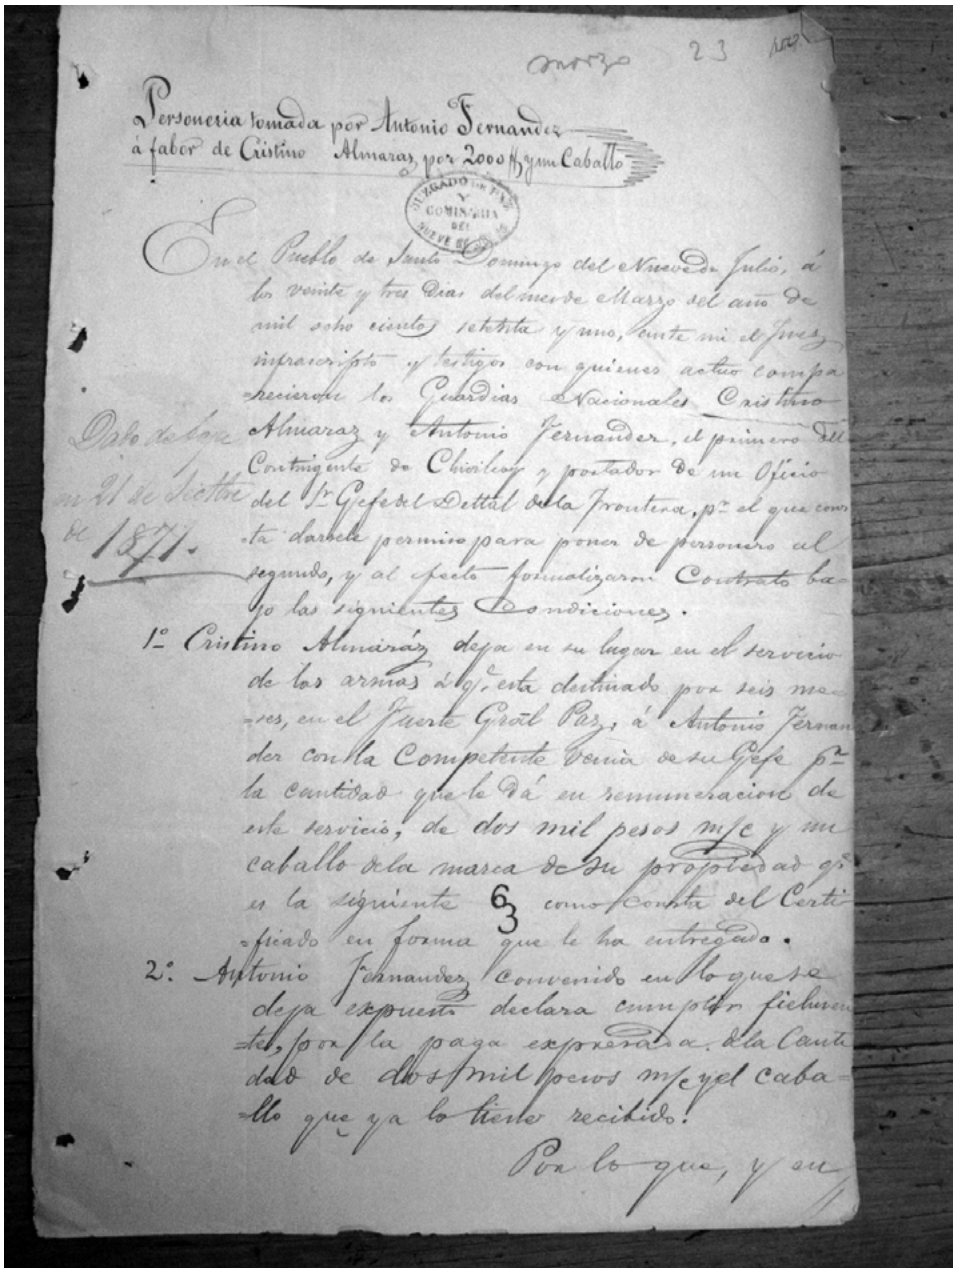 marzo 23
Personeria tomada por Antonio Fernandez
á fabor de Cristino Almaras, por 2000 $ y un Caballo
JUZGADO DE PAZ
Y
COMISARIA
DEL
NUEVE DE JULIO
En el Pueblo de Santo Domingo del Nueve de Julio, á
los veinte y tres dias del mes de Marzo del año de
mil ocho cientos setenta y uno, ante mi el Juez
infrascripto y testigos con quienes actuo compa
=recieron los Guardias Nacionales Cristino
Almaraz y Antonio Fernandez, el primero del
Contingente de Chivilcoy y portador de un Oficio
del Sr Gefe del Dettal de la Frontera, pr el que cons
=ta darsele permiso para poner de personero al
segundo, y al efecto formalizaron Contrato ba=
jo las siguientes Condiciones.
Dado de baja
en 21 de Setbre
de 1871.
1º Cristino Almaráz deja en su lugar en el servicio
de las armas á q.e esta destinado por seis me=
=ses, en el Fuerte Gral Paz, á Antonio Fernan
dez con la Competente Venia de su Gefe pr
la cantidad que le dá en remuneracion de
este servicio, de dos mil pesos m/c y un
caballo de la marca de su propiedad q.e
es la siguiente como consta del Certi
=ficado en forma que le ha entregado.
2º. Antonio Fernandez convenido en lo que se
deja expuesto declara cumplir fielmen
=te, por la paga expresada de la Canti
dad de dos mil pesos m/c y el caba=
=llo que ya lo tiene recibido.
Por lo que, y en